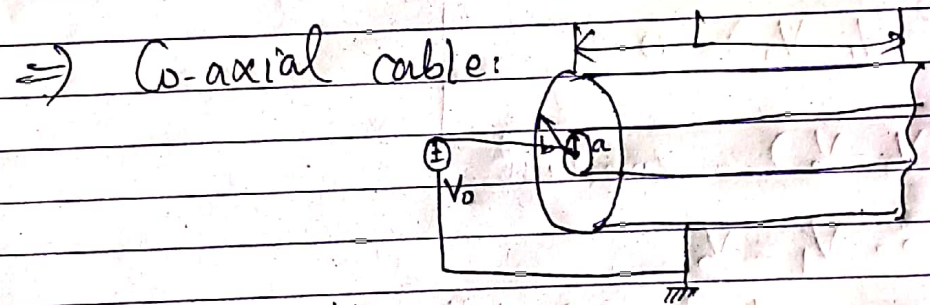 L
=) Co-axial cable:
b a
V₀